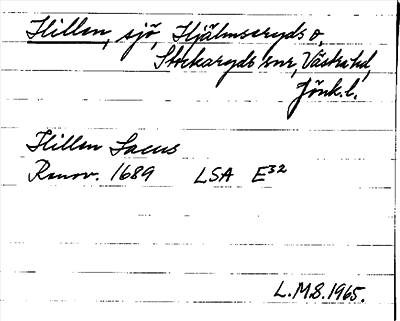 Hillen, sjö, Hjälmseryds o,
Stockaryds snr, Västra hd,
Jönk.l.
Hillen Lacus
Renov. 1689 LSA E32
L.M.S. 1965.